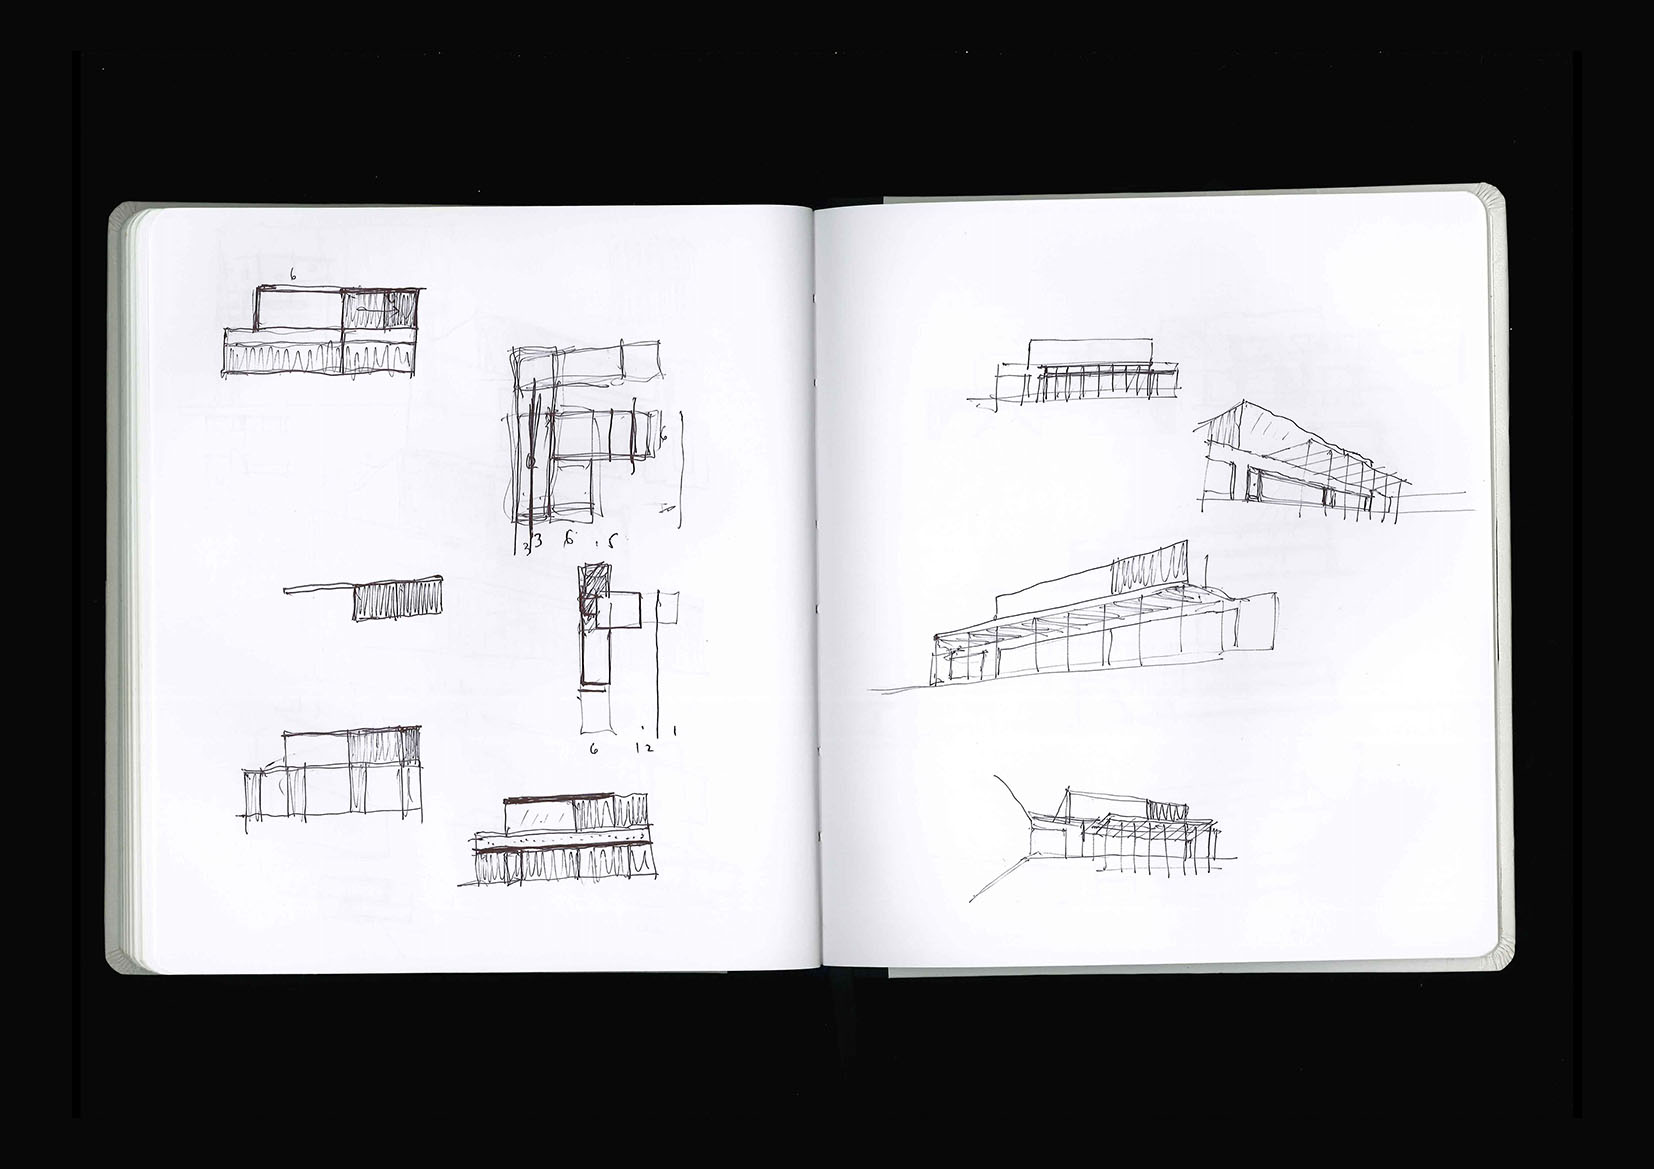 6
6
3 3 6 . 5
6 12 1